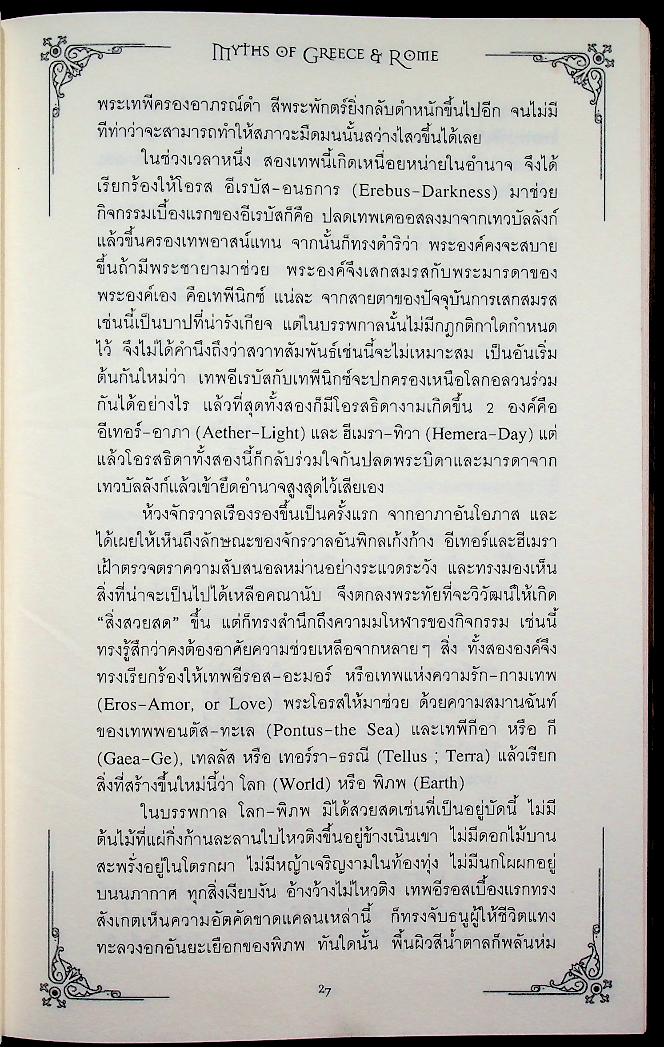 MYTHS OF GREECE & ROME
พระเทพีครองอาภรณ์ดำ สีพระพักตร์ยิ่งกลับดำหนักขึ้นไปอีก จนไม่มี
ทีท่าว่าจะสามารถทำให้สภาวะมืดมนนั้นสว่างไสวขึ้นได้เลย
ในช่วงเวลาหนึ่ง สองเทพนี้เกิดเหนื่อยหน่ายในอำนาจ จึงได้
เรียกร้องให้โอรส อีเรบัส-อนธการ (Erebus-Darkness) มาช่วย
กิจกรรมเบื้องแรกของอีเรบัสก็คือ ปลดเทพเคออสลงมาจากเทวบัลลังก์
แล้วขึ้นครองเทพอาสน์แทน จากนั้นก็ทรงดำริว่า พระองค์คงจะสบาย
ขึ้นถ้ามีพระชายามาช่วย พระองค์จึงเสกสมรสกับพระมารดาของ
พระองค์เอง คือเทพีนิกซ์ แน่ละ จากสายตาของปัจจุบันการเสกสมรส
เช่นนี้เป็นบาปที่น่ารังเกียจ แต่ในบรรพกาลนั้นไม่มีกฎกติกาใดกำหนด
ไว้ จึงไม่ได้คำนึงถึงว่าสวาทสัมพันธ์เช่นนี้จะไม่เหมาะสม เป็นอันเริ่ม
ต้นกันใหม่ว่า เทพอีเรบัสกับเทพีนิกซ์จะปกครองเหนือโลกอลวนร่วม
กันได้อย่างไร แล้วที่สุดทั้งสองก็มีโอรสธิดางามเกิดขึ้น 2 องค์คือ
อีเทอร์-อาภา (Aether-Light) และ ฮีเมรา-ทิวา (Hemera-Day) แต่
แล้วโอรสธิดาทั้งสองนี้ก็กลับร่วมใจกันปลดพระบิดาและมารดาจาก
เทวบัลลังก์แล้วเข้ายึดอำนาจสูงสุดไว้เสียเอง
ห้วงจักรวาลเรืองรองขึ้นเป็นครั้งแรก จากอาภาอันโอภาส และ
ได้เผยให้เห็นถึงลักษณะของจักรวาลอันพิกลเก้งก้าง อีเทอร์และฮีเมรา
เฝ้าตรวจตราความสับสนอลหม่านอย่างระแวดระวัง และทรงมองเห็น
สิ่งที่น่าจะเป็นไปได้เหลือคณานับ จึงตกลงพระทัยที่จะวิวัฒน์ให้เกิด
“สิ่งสวยสด” ขึ้น แต่ก็ทรงสำนึกถึงความมโหฬารของกิจกรรม เช่นนี้
ทรงรู้สึกว่าคงต้องอาศัยความช่วยเหลือจากหลายๆ สิ่ง ทั้งสององค์จึง
ทรงเรียกร้องให้เทพอีรอส-อะมอร์ หรือเทพแห่งความรัก-กามเทพ
(Eros-Amor, or Love) พระโอรสให้มาช่วย ด้วยความสมานฉันท์
ของเทพพอนตัส-ทะเล (Pontus-the Sea) และเทพีกีอา หรือ กี
(Gaea-Ge), เทลลัส หรือ เทอร์รา-ธรณี (Tellus ; Terra) แล้วเรียก
สิ่งที่สร้างขึ้นใหม่นี้ว่า โลก (World) หรือ พิภพ (Earth)
ในบรรพกาล โลก-พิภพ มิได้สวยสดเช่นที่เป็นอยู่บัดนี้ ไม่มี
ต้นไม้ที่แผ่กิ่งก้านละลานใบไหวติงขึ้นอยู่ข้างเนินเขา ไม่มีดอกไม้บาน
สะพรั่งอยู่ในโตรกผา ไม่มีหญ้าเจริญงามในท้องทุ่ง ไม่มีนกโผผกอยู่
บนนภากาศ ทุกสิ่งเงียบงัน อ้างว้างไม่ไหวติง เทพอีรอสเบื้องแรกทรง
สังเกตเห็นความอัตคัดขาดแคลนเหล่านี้ ก็ทรงจับธนูผู้ให้ชีวิตแทง
ทะลวงอกอันยะเยือกของพิภพ ทันใดนั้น พื้นผิวสีน้ำตาลก็พลันห่ม
27